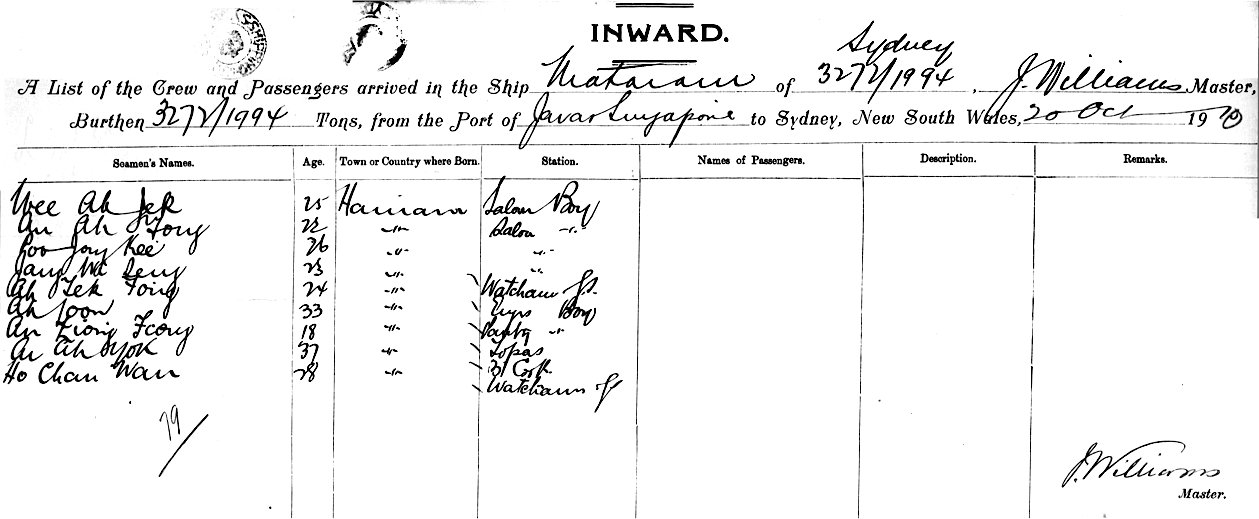 SHIPPING
INWARD.
Sydney
A List of the Crew and Passengers arrived in the Ship Mataram of 3272/1994, J. Williams Master,
Burthen 3272/1994 Tons, from the Port of Java & Singapore to Sydney, New South Wales, 20 Oct 19
Seamen's Names. Age. Town or Country where Born. Station. Names of Passengers. Description. Remarks.
Wee Ah Jek 25 Hainam Saloon Boy
Ah Fong 22 -"- Saloon -"-
Kee 26 -"- -"-
23 -"- -"-
Ah Tek Fong 24 -"-
Ah Joon 33 -"- Boy
18 -"- Pantry -"-
Ah 37 -"- Topas
Ho Chan Wan 28 -"- 3rd Cook
79/
J. Williams
Master.